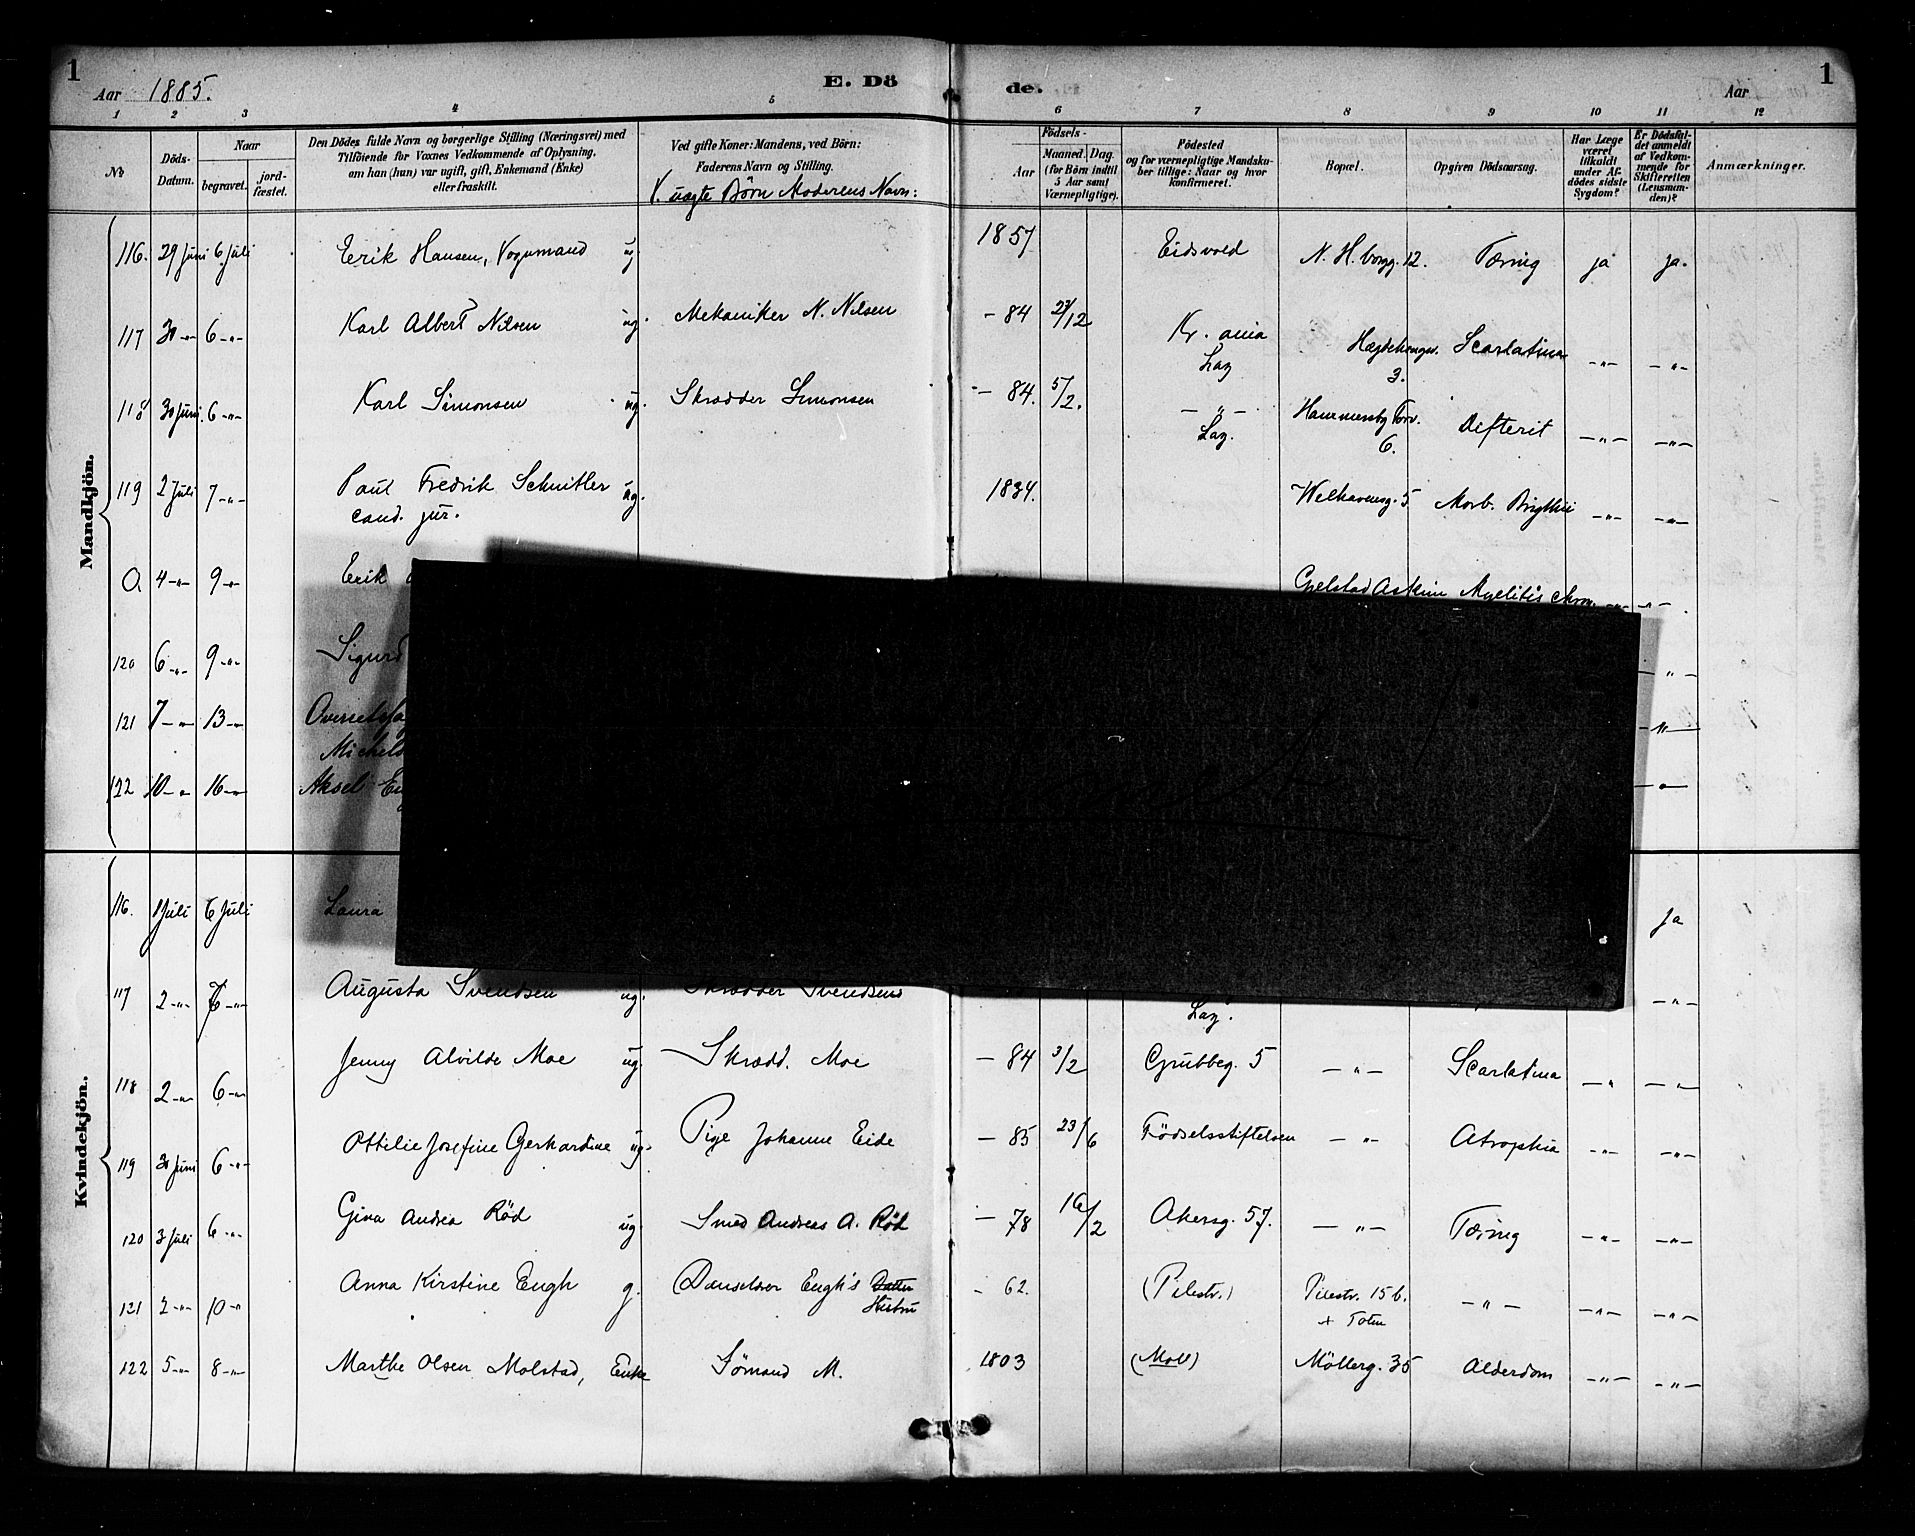 1
Aar 1885.
E. Dö
de.
Aar
1
1 2 3 4 5 6 7 8 9 10 11 12
No
Döds-Datum.
Naar
begravet.
jordfæstet.
Den Dödes fulde Navn og borgerlige Stilling (Næringsvei) med
Tilföiende for Voxnes Vedkommende af Oplysning,
om han (hun) var ugift, gift, Enkemand (Enke)
eller fraskilt.
Ved gifte Koner: Mandens, ved Börn:
Faderens Navn og Stilling.
V. uægte Börn Moderens Navn:
Födsels-
Aar
Maaned. Dag.
(for Börn indtil
5 Aar samt
Værnepligtige).
Födested
og for værnepligtige Mandska-
ber tillige: Naar og hvor
konfirmeret.
Bopæl.
Opgiven Dödsaarsag.
Har Læge
været
tilkaldt
under Af-
dödes sidste
Sygdom?
Er Dödsfal-
det anmeldt
af Vedkom-
mende for
Skifteretten
(Lensman-
den)?
Anmærkninger.
Mandkjön.
116. 29 Juni 6 Juli Erik Hansen, Vognmand ug. 1857 Eidsvold N. H. borgg. 12. Tæring ja ja.
117 30 -"- 6 -"- Karl Albert Nilsen ug. Mekaniker N. Nilsen - 84 23/12 Kr. ania Haegdehaugsv. Scarlatina -"- -"-
Laz 3.
118 30 Juni 6 -"- Karl Simonsen ug. Skrædder Simonsen - 84. 5/2. -"- Hammersby Torv. Difterit -"- -"-
Laz. 6.
119 2 Juli 7 -"- Paul Fredrik Schnitler ug. 1834. Welhavensg. 5 Morb. Brigthii -"- -"-
cand. jur.
a 4 -"- 9 -"- Erik Gjelstad Askim Myelitis chron. -"- -"-
120 6 -"- 9 -"- Sigurd -"-
121 7 -"- 13 -"-
122 10 -"- 16 -"- Aksel -"-
Kvindekjön.
116. 1 Juli 6 Juli Laura ja
117 2 -"- 6 -"- Augusta Svendsen ug. Skrædder Svendsens Laz. -"-
118 2 -"- 6 -"- Jenny Alvilde Moe ug. Skrædd. Moe - 84 3/2 Grubbeg. 5 -"- Scarlatina -"- -"-
119 30 Juni 6 -"- Ottilie Josefine Gerhardine ug. Pige Johanne Eide - 85 23/6 Födselsstiftelsen -"- Atrophia -"- -"-
120 3 Juli 6 -"- Gina Andrea Röd ug. Smed Andreas A. Röd - 78 16/2 Akersg. 57. -"- Tæring -"- -"-
121 2 -"- 10 -"- Anna Kirstine Engh g. Danselærer Engh's Datter Hustru - 62. (Pilestr.) Pilestr. 15 b. -"- -"- -"-
+ Toten
122 5 -"- 8 -"- Marthe Olsen Molstad, Enke Sömand M. 1803 (Moll) Möllerg. 35 Alderdom -"- -"-